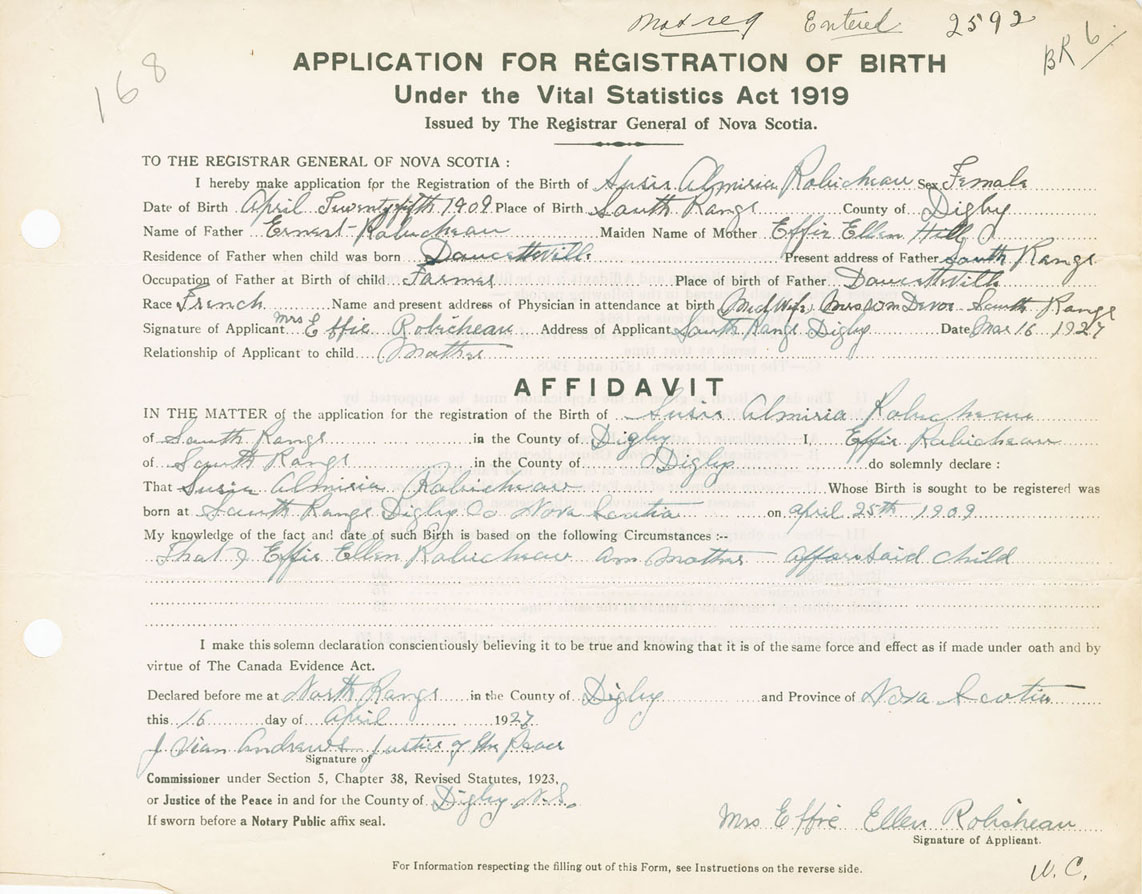 Entered 2592
BR 6
168
APPLICATION FOR REGISTRATION OF BIRTH
Under the Vital Statistics Act 1919
Issued by The Registrar General of Nova Scotia.
TO THE REGISTRAR GENERAL OF NOVA SCOTIA :
I hereby make application for the Registration of the Birth of Susie Almiria Robicheau Sex Female
Date of Birth April Twenty fifth 1909 Place of Birth South Range County of Digby
Name of Father Ernest Robicheau Maiden Name of Mother Effie Ellen Hill
Residence of Father when child was born Doucetteville Present address of Father South Range
Occupation of Father at Birth of child Farmer Place of birth of Father Doucetteville
Race French Name and present address of Physician in attendance at birth (Mid Wife) Mrs Wm Devor South Range
Signature of Applicant Mrs Effie Robicheau Address of Applicant South Range Digby Date Mar 16 1927
Relationship of Applicant to child Mother
AFFIDAVIT
IN THE MATTER of the application for the registration of the Birth of Susie Almiria Robicheau
of South Range in the County of Digby I, Effie Robicheau
of South Range in the County of Digby do solemnly declare :
That Susie Almiria Robicheau Whose Birth is sought to be registered was
born at South Range Digby Co Nova Scotia on April 25th 1909
My knowledge of the fact and date of such Birth is based on the following Circumstances :--
That I Effie Ellen Robicheau am mother afforesaid child
I make this solemn declaration conscientiously believing it to be true and knowing that it is of the same force and effect as if made under oath and by
virtue of The Canada Evidence Act.
Declared before me at North Range in the County of Digby and Province of Nova Scotia
this 16 day of April 1927
J Vian Andrews Justice of the Peace
Signature of
Commissioner under Section 5, Chapter 38, Revised Statutes, 1923,
or Justice of the Peace in and for the County of Digby N.S.
If sworn before a Notary Public affix seal.
Mrs Effie Ellen Robicheau
Signature of Applicant.
For Information respecting the filling out of this Form, see Instructions on the reverse side.
W. C.